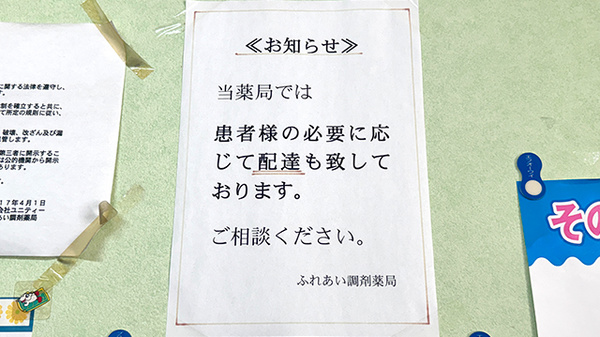 に関する法律を遵守し、
す。
制を確立すると共に、
て所定の規則に従い、
破壊、改ざん及び漏
管します。
第三者に開示するこ
は公的機関から開示
あります。
す。
17年4月1日
会社ユニティー
あい調剤薬局
≪お知らせ≫
当薬局では
患者様の必要に応
じて配達も致して
おります。
ご相談ください。
ふれあい調剤薬局
その